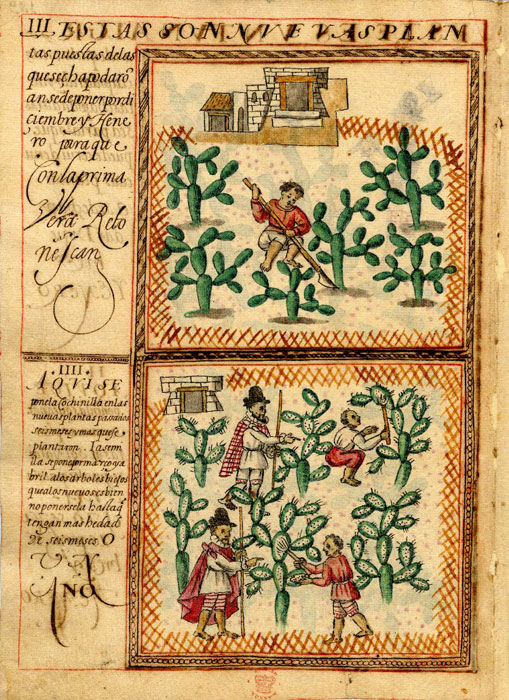 III ESTAS SON NVEVAS PLAM
tas puestas de las
que se chapodarõ
an se de poner por di
ciembre y Hene
ro para que
Con la prima
Vera Reto
ñescan
IIII
AQVI SE
pone la Cochinilla en las
nueuas plantas pasados
seis meses y mas que se
plantaron. La semi
lla se pone por março y a
bril. a los arboles biejos
que a los nueuos es bien
no ponersela hasta q̃
tengan mas hedad
De seis meses O
VN
AÑO